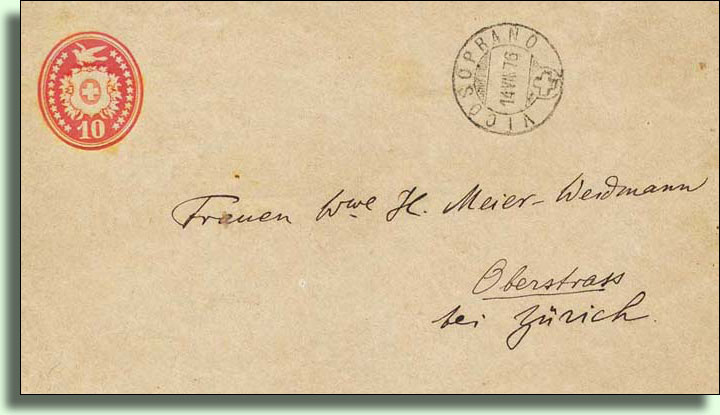 10
VICOSOPRANO
14 VIII 76
Frauen Wwe H. Meier-Weidmann
Oberstrass
bei Zürich.